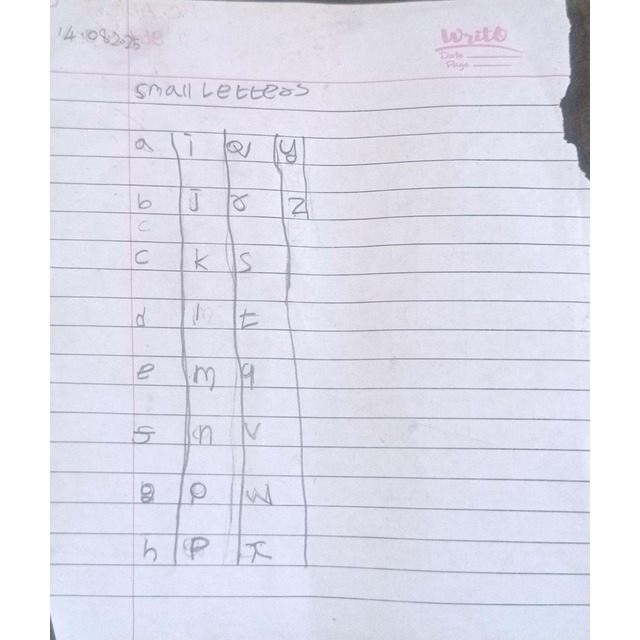 14.08.2025
Write
Date
Page
small Letters
a i q y
b j r z
c
c k s
d t
e m q
5 n v
g o w
h p x